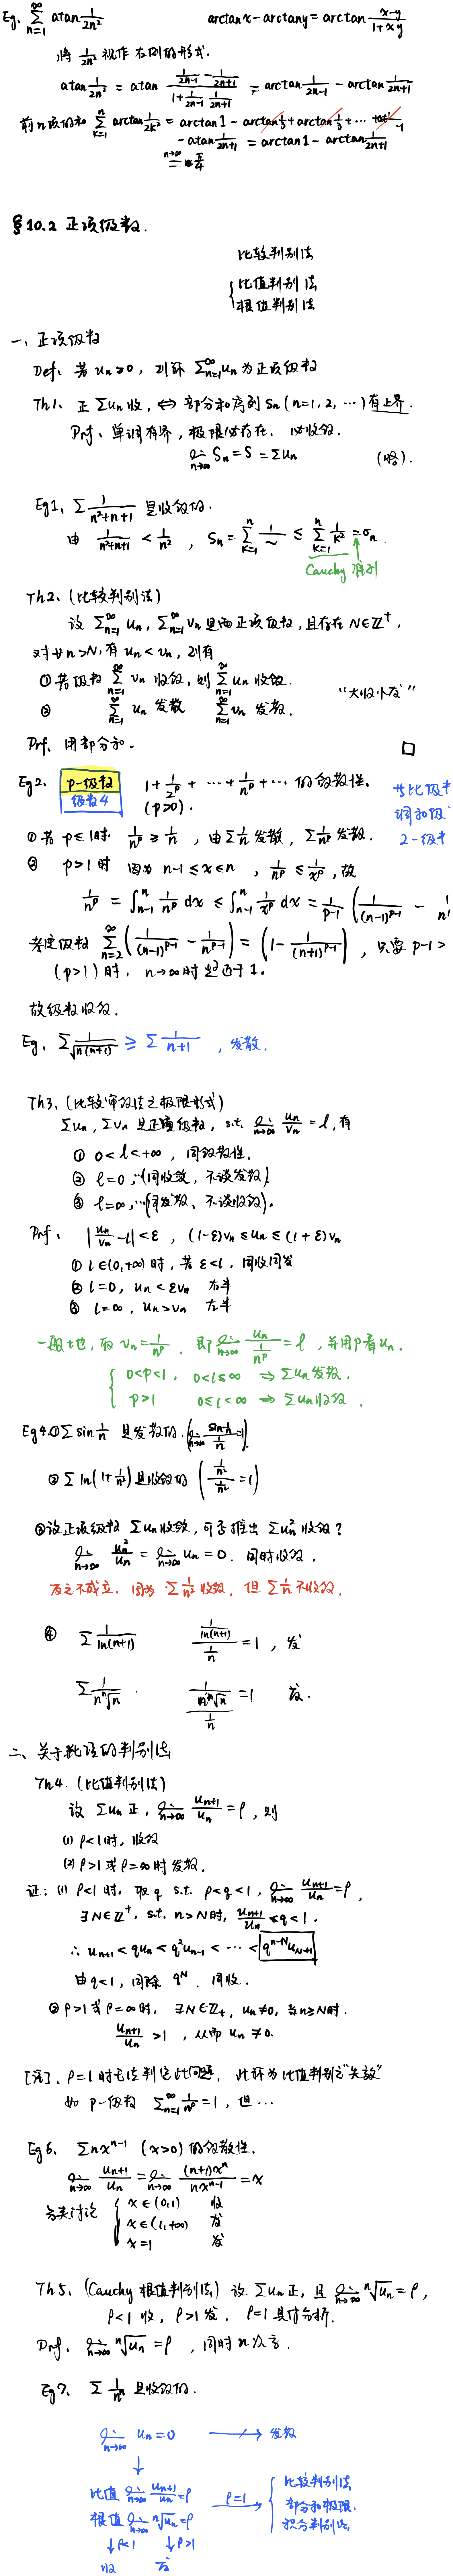 Eg. ∑_{n=1}^{∞} atan 1/(2n²)    arctan x - arctan y = arctan (x-y)/(1+xy)
将 1/(2n²) 视作右侧的形式.
atan 1/(2n²) = atan (1/(2n-1) - 1/(2n+1))/(1 + 1/(2n-1) · 1/(2n+1)) = arctan 1/(2n-1) - arctan 1/(2n+1)
前n项的和 ∑_{k=1}^{n} arctan 1/(2k²) = arctan 1 - arctan 1/3 + arctan 1/3 + ⋯
- atan 1/(2n+1) = arctan 1 - arctan 1/(2n+1)
n→∞ = π/4
§10.2 正项级数.
比较判别法
{ 比值判别法
根值判别法
一、正项级数
Def. 若 uₙ≥0, 则称 ∑_{n=1}^{∞} uₙ 为正项级数
Th1. 正 ∑uₙ 收, ⇔ 部分和序列 Sₙ (n=1, 2, ⋯) 有上界.
Prf. 单调有界, 极限必存在. 必收敛.
lim_{n→∞} Sₙ = S = ∑uₙ    (略).
Eg1. ∑ 1/(n²+n+1) 是收敛的.
由 1/(n²+n+1) < 1/n², Sₙ = ∑_{k=1}^{n} 1/~ ≤ ∑_{k=1}^{n} 1/k² = σₙ
Cauchy 准则
Th2. (比较判别法)
设 ∑_{n=1}^{∞} uₙ, ∑_{n=1}^{∞} vₙ 是两正项级数, 且存在 N∈Z⁺,
对∀n>N, 有 uₙ<vₙ, 则有
① 若级数 ∑_{n=1}^{∞} vₙ 收敛, 则 ∑_{n=1}^{∞} uₙ 收敛.
② ∑_{n=1}^{∞} uₙ 发散 ∑_{n=1}^{∞} vₙ 发散.    “大收小发”
Prf. 用部分和.    □
Eg2. p-级数 1 + 1/2^p + ⋯ + 1/n^p + ⋯ 的敛散性.
级数4 (p>0).
与比级
调和级
2-级
① 若 p≤1时 1/n^p ≥ 1/n, 由 ∑1/n 发散, ∑1/n^p 发散.
② p>1 时 因为 n-1≤x≤n, 1/n^p ≤ 1/x^p, 故
1/n^p = ∫_{n-1}^{n} 1/n^p dx ≤ ∫_{n-1}^{n} 1/x^p dx = 1/(p-1) (1/(n-1)^{p-1} - 1/n
考虑级数 ∑_{n=2}^{∞} (1/(n-1)^{p-1} - 1/n^{p-1}) = (1 - 1/(n+1)^{p-1}), 只要 p-1>
(p>1) 时, n→∞时趋近于1.
故级数收敛.
Eg. ∑ 1/√(n(n+1)) ≥ ∑ 1/(n+1), 发散.
Th3. (比较审敛法之极限形式)
∑uₙ, ∑vₙ 是正项级数, s.t. lim_{n→∞} uₙ/vₙ = l, 有
① 0<l<+∞, 同敛散性.
② l=0, ⋯(同收敛, 不谈发散).
③ l=∞, ⋯(同发散, 不谈收敛).
Prf. |uₙ/vₙ - l| < ε, (l-ε)vₙ ≤ uₙ ≤ (l+ε)vₙ
① l∈(0,+∞) 时, 若 ε<l, 同收同发
② l=0, uₙ<εvₙ 右半
③ l=∞, uₙ>vₙ 左半
一般地, 取 vₙ=1/n^p. 即 lim_{n→∞} uₙ/(1/n^p) = l, 并用p看uₙ.
{ 0<p<1, 0<l≤∞ ⇒ ∑uₙ 发散.
p>1 0≤l<∞ ⇒ ∑uₙ 收敛.
Eg4. ① ∑ sin 1/n 是发散的. (lim_{n→∞} (sin 1/n)/(1/n) = 1).
② ∑ ln(1+1/n²) 是收敛的 ((1/n²)/(1/n²) = 1)
③ 设正项级数 ∑uₙ 收敛, 可否推出 ∑uₙ² 收敛?
lim_{n→∞} uₙ²/uₙ = lim_{n→∞} uₙ = 0. 同时收敛.
反之不成立. 因为 ∑1/n² 收敛, 但 ∑1/n 不收敛.
④ ∑ 1/ln(n+1)    (1/ln(n+1))/(1/n) = 1, 发
∑ 1/(n ⁿ√n).    (1/(n ⁿ√n))/(1/n) = 1 发.
二、关于 的判别法
Th4. (比值判别法)
设 ∑uₙ 正, lim_{n→∞} uₙ₊₁/uₙ = ρ, 则
(1) ρ<1时, 收敛
(2) ρ>1 或 ρ=∞ 时发散.
证: (1) ρ<1 时, 取 q s.t. ρ<q<1, lim_{n→∞} uₙ₊₁/uₙ = ρ,
∃N∈Z⁺, s.t. n>N时, uₙ₊₁/uₙ < q < 1.
∴ uₙ₊₁ < quₙ < q²uₙ₋₁ < ⋯ < q^{n-N}u_{N+1}
由 q<1, 同除 q^N. 同收.
② ρ>1 或 ρ=∞时, ∃N∈Z₊, uₙ≠0, 当n≥N时.
uₙ₊₁/uₙ > 1, 从而 uₙ ≠ 0.
[注]. ρ=1 时无法判定此问题, 此称为比值判别法“失效”
如 p-级数 ∑_{n=1}^{∞} 1/n^p = 1, 但⋯
Eg6. ∑ n xⁿ⁻¹ (x>0) 的敛散性.
lim_{n→∞} uₙ₊₁/uₙ = lim_{n→∞} (n+1)xⁿ/(n xⁿ⁻¹) = x
分类讨论 { x∈(0,1) 收
x∈(1,+∞) 发
x=1 发
Th5. (Cauchy 根值判别法) 设 ∑uₙ 正, 且 lim_{n→∞} ⁿ√uₙ = ρ,
ρ<1 收, ρ>1 发. ρ=1 具体分析.
Prf. lim_{n→∞} ⁿ√uₙ = ρ, 同时n次方.
Eg7. ∑ 1/nⁿ 是收敛的.
lim_{n→∞} uₙ = 0 ↛ 发散
↓
比值 lim_{n→∞} uₙ₊₁/uₙ = ρ
根值 lim_{n→∞} ⁿ√uₙ = ρ
ρ=1 → { 比较判别法
部分和极限.
积分判别法
↓ρ<1 ↓ρ>1
收 发